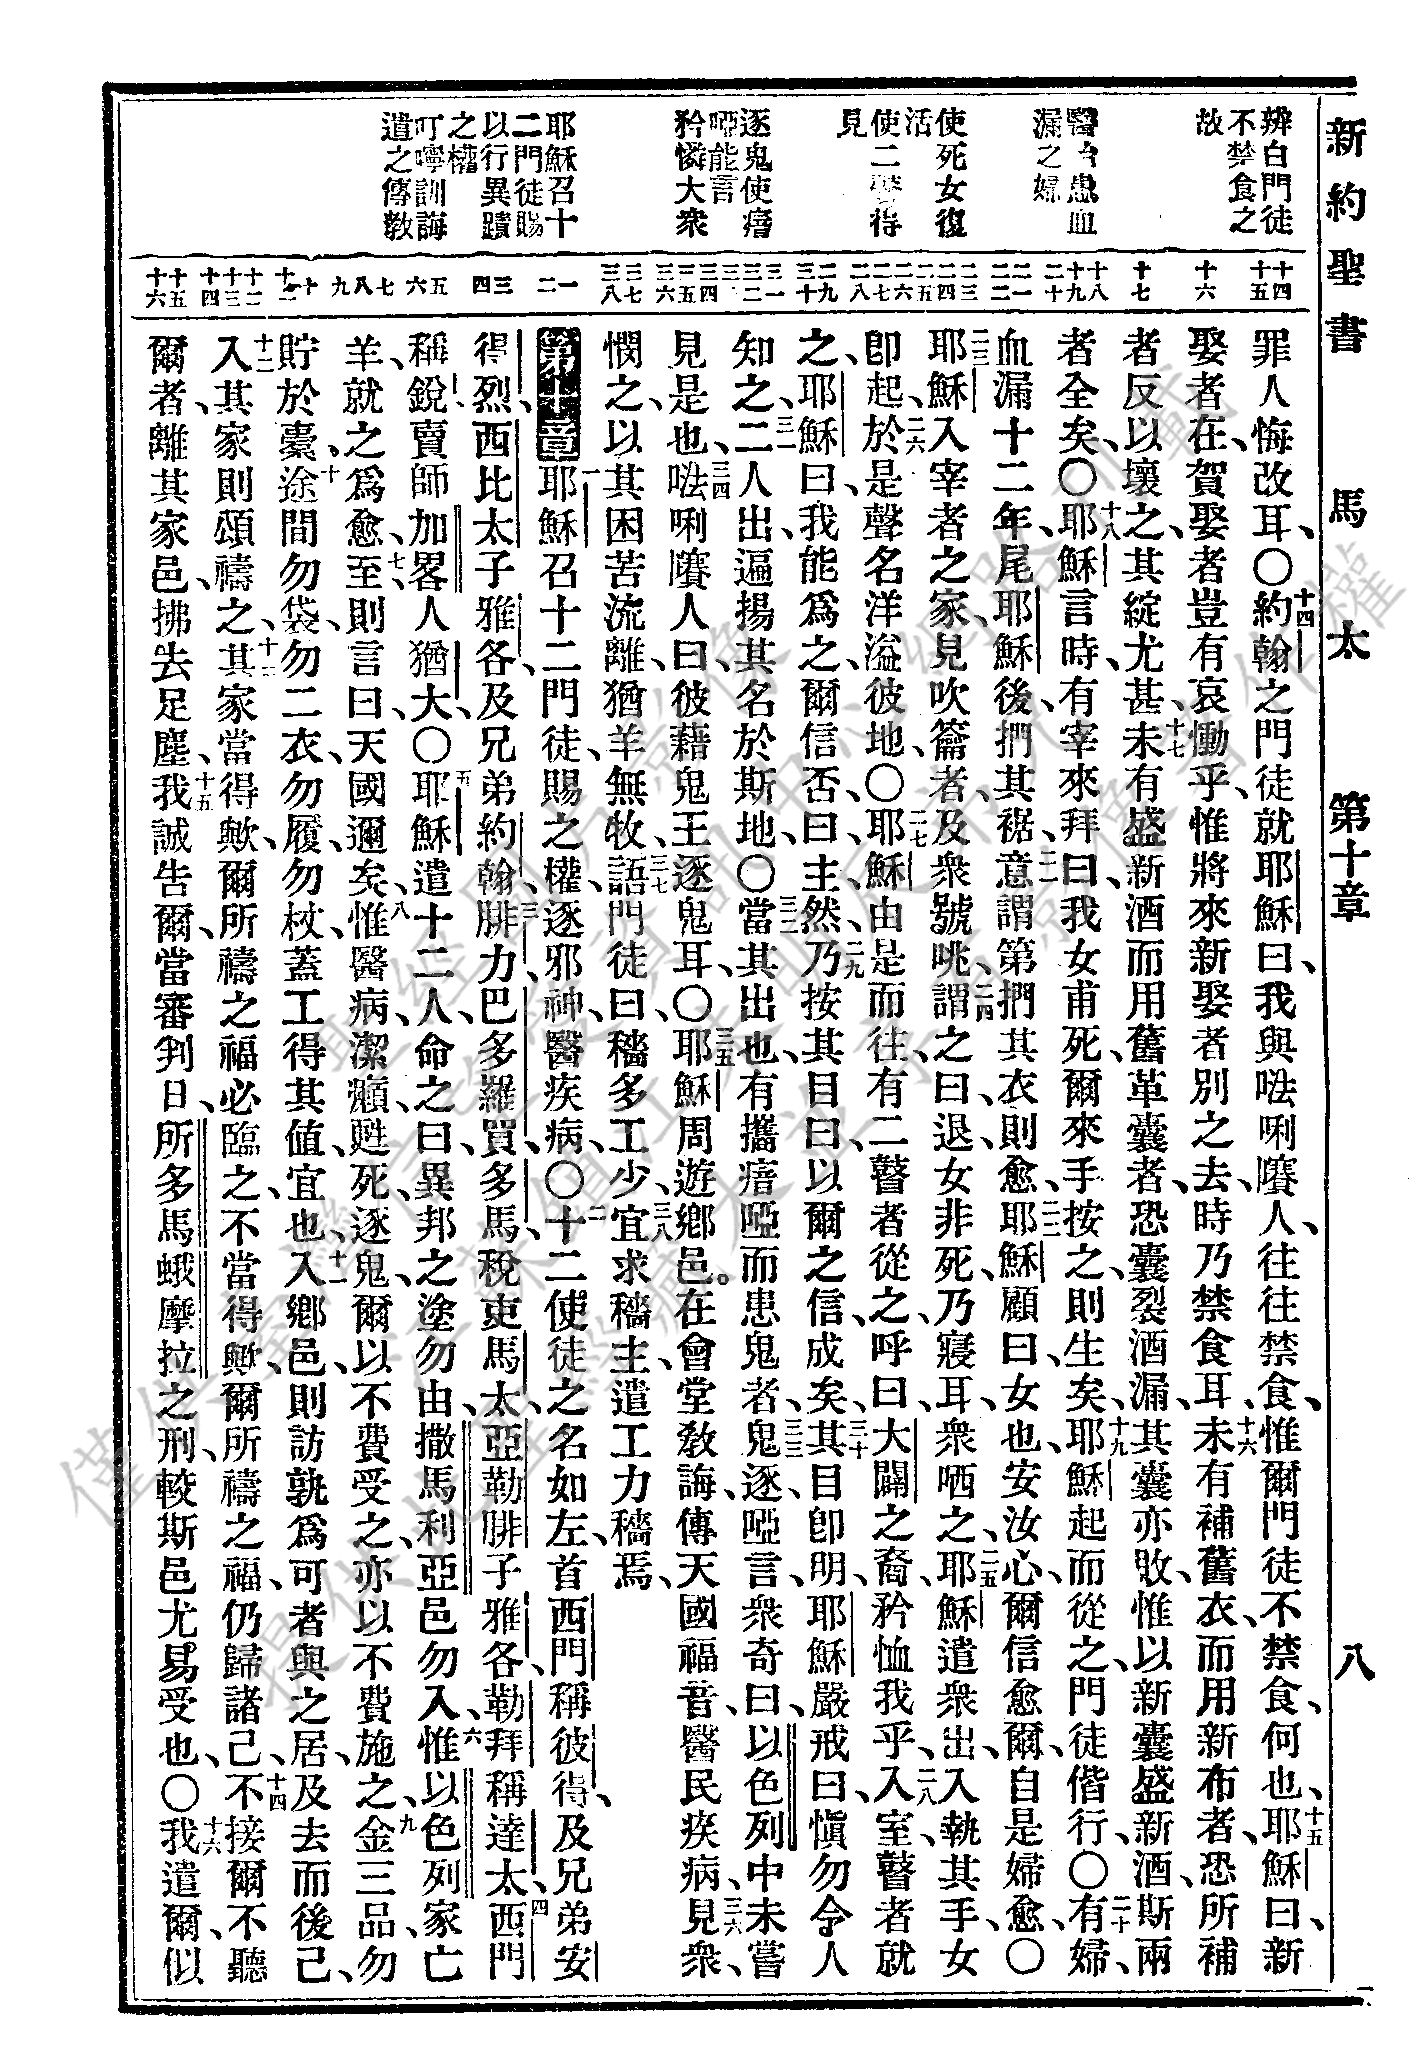 新約聖書 馬太 第十章 八
辨白門徒
不禁食之
故
醫治患血
漏之婦
使死女復
活
使二瞽得
見
逐鬼使瘖
啞能言
矜憐大衆
耶穌召十
二門徒賜
以行異蹟
之權
叮嚀訓誨
遣之傳教
罪人悔改耳、〇十四約翰之門徒就耶穌曰、我與𠵽唎㘔人、往往禁食、惟爾門徒不禁食、何也、十五耶穌曰、新
娶者在、賀娶者豈有哀慟乎、惟將來新娶者別之去、時乃禁食耳、十六未有補舊衣、而用新布者、恐所補
者反以壞之、其綻尤甚、十七未有盛新酒而用舊革囊者、恐囊裂酒漏、其囊亦敗、惟以新囊盛新酒、斯兩
者全矣、〇十八耶穌言時、有宰來拜曰、我女甫死、爾來手按之、則生矣、十九耶穌起而從之、門徒偕行、〇二十有婦、
血漏十二年、尾耶穌後、捫其裾、二一意謂第捫其衣則愈、二二耶穌顧曰、女也、安汝心、爾信愈爾、自是婦愈、〇
二三耶穌入宰者之家、見吹籥者、及衆號咷、二四謂之曰、退、女非死、乃寢耳、衆哂之、二五耶穌遣衆出、入執其手、女
卽起、二六於是聲名洋溢彼地、〇二七耶穌由是而往、有二瞽者從之、呼曰、大闢之裔、矜恤我乎、二八入室、瞽者就
之、耶穌曰、我能爲之、爾信否、曰、主、然、二九乃按其目曰、以爾之信、成矣、三十其目卽明、耶穌嚴戒曰、愼勿令人
知之、三一二人出、遍揚其名於斯地、〇三二當其出也、有攜瘖啞而患鬼者、三三鬼逐、啞言、衆奇曰、以色列中未嘗
見是也、三四𠵽唎㘔人曰、彼藉鬼王逐鬼耳、〇三五耶穌周遊鄉邑。在會堂教誨、傳天國福音、醫民疾病、三六見衆、
憫之、以其困苦流離、猶羊無牧、三七語門徒曰、穡多工少、三八宜求穡主、遣工力穡焉、
第十章 一耶穌召十二門徒、賜之權、逐邪神、醫疾病、〇二十二使徒之名如左、首西門、稱彼得、及兄弟安
得烈、西比太子雅各、及兄弟約翰、三腓力、巴多羅買、多馬、稅吏馬太、亞勒腓子雅各、勒拜、稱達太、四西門
稱銳、賣師加畧人猶大、〇五耶穌遣十二人、命之曰、異邦之塗勿由、撒馬利亞邑勿入、六惟以色列家亡
羊、就之爲愈、七至則言曰、天國邇矣、八惟醫病、潔癩、甦死、逐鬼、爾以不費受之、亦以不費施之、九金三品、勿
貯於橐、十途間勿袋、勿二衣、勿履、勿杖、蓋工得其値宜也、十一入鄉邑、則訪孰爲可者、與之居、及去而後已、
十二入其家、則頌禱之、十三其家當得歟、爾所禱之福必臨之、不當得歟、爾所禱之福、仍歸諸己、十四不接爾、不聽
爾者、離其家邑、拂去足塵、十五我誠告爾、當審判日、所多馬蛾摩拉之刑、較斯邑尤易受也、〇十六我遣爾、似